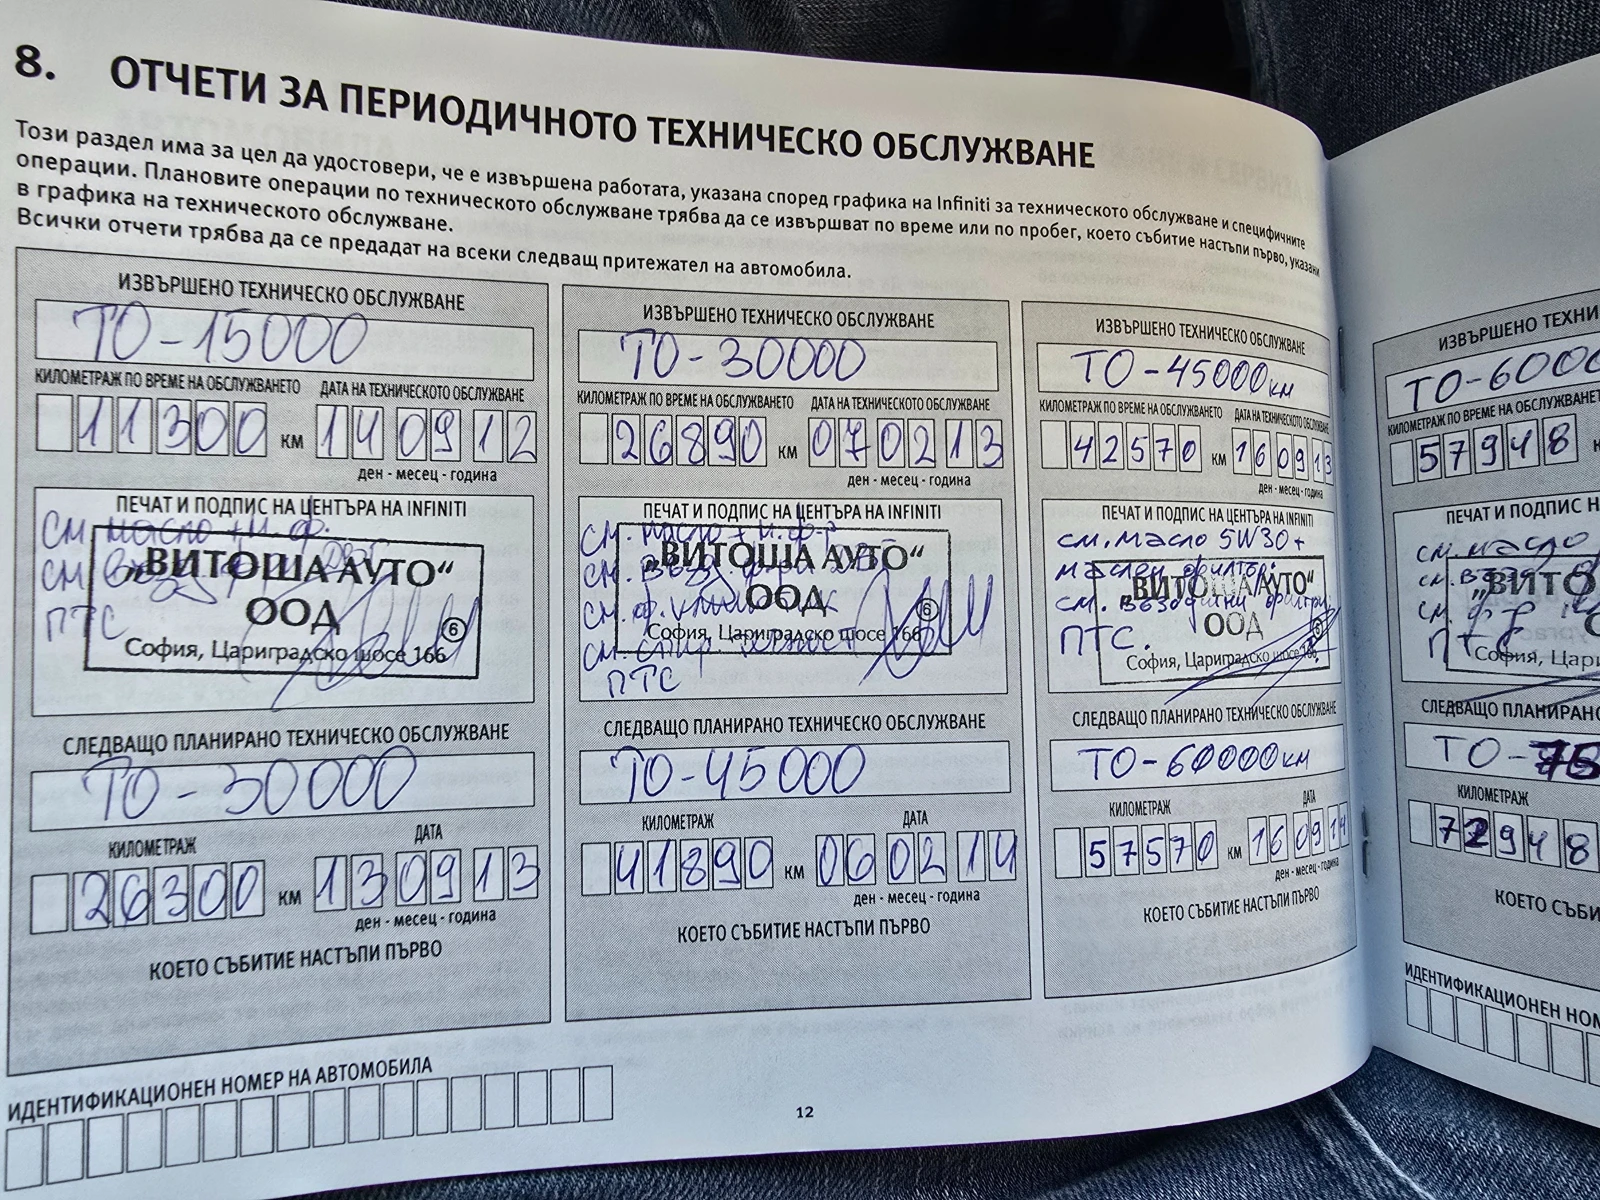 8. ОТЧЕТИ ЗА ПЕРИОДИЧНОТО ТЕХНИЧЕСКО ОБСЛУЖВАНЕ
Този раздел има за цел да удостовери, че е извършена работата, указана според графика на Infiniti за техническото обслужване и специфичните
операции. Плановите операции по техническото обслужване трябва да се извършват по време или по пробег, което събитие настъпи първо, указани
в графика на техническото обслужване.
Всички отчети трябва да се предадат на всеки следващ притежател на автомобила.
ИЗВЪРШЕНО ТЕХНИЧЕСКО ОБСЛУЖВАНЕ
ТО-15000
КИЛОМЕТРАЖ ПО ВРЕМЕ НА ОБСЛУЖВАНЕТО ДАТА НА ТЕХНИЧЕСКОТО ОБСЛУЖВАНЕ
11300 км 140912
ден - месец - година
ПЕЧАТ И ПОДПИС НА ЦЕНТЪРА НА INFINITI
см. масло + м. ф.
„ВИТОША АУТО“
ООД
ПТС
6
София, Цариградско шосе 166
СЛЕДВАЩО ПЛАНИРАНО ТЕХНИЧЕСКО ОБСЛУЖВАНЕ
ТО-30000
КИЛОМЕТРАЖ ДАТА
26300 км 130913
ден - месец - година
КОЕТО СЪБИТИЕ НАСТЪПИ ПЪРВО
ИЗВЪРШЕНО ТЕХНИЧЕСКО ОБСЛУЖВАНЕ
ТО-30000
КИЛОМЕТРАЖ ПО ВРЕМЕ НА ОБСЛУЖВАНЕТО ДАТА НА ТЕХНИЧЕСКОТО ОБСЛУЖВАНЕ
26890 км 070213
ден - месец - година
ПЕЧАТ И ПОДПИС НА ЦЕНТЪРА НА INFINITI
см. масло + м. ф-р
„ВИТОША АУТО“
ООД
6
София, Цариградско шосе 166
ПТС
СЛЕДВАЩО ПЛАНИРАНО ТЕХНИЧЕСКО ОБСЛУЖВАНЕ
ТО-45000
КИЛОМЕТРАЖ ДАТА
41890 км 060214
ден - месец - година
КОЕТО СЪБИТИЕ НАСТЪПИ ПЪРВО
ИЗВЪРШЕНО ТЕХНИЧЕСКО ОБСЛУЖВАНЕ
ТО-45000км
КИЛОМЕТРАЖ ПО ВРЕМЕ НА ОБСЛУЖВАНЕТО ДАТА НА ТЕХНИЧЕСКОТО ОБСЛУЖВАНЕ
42570 км 160913
ден - месец - година
ПЕЧАТ И ПОДПИС НА ЦЕНТЪРА НА INFINITI
см. масло 5W30+
маслен филтър.
„ВИТОША АУТО“
см. въздушни филтри
ООД
ПТС.
София, Цариградско шосе 166
СЛЕДВАЩО ПЛАНИРАНО ТЕХНИЧЕСКО ОБСЛУЖВАНЕ
ТО-60000км
КИЛОМЕТРАЖ ДАТА
57570 км 160914
ден - месец - година
КОЕТО СЪБИТИЕ НАСТЪПИ ПЪРВО
ИДЕНТИФИКАЦИОНЕН НОМЕР НА АВТОМОБИЛА
12
ИЗВЪРШЕНО ТЕХНИ
ТО-6000
КИЛОМЕТРАЖ ПО ВРЕМЕ НА ОБСЛУЖВАНЕТ
57948
ПЕЧАТ И ПОДПИС Н
см. масло
„ВИТО
ПТС
София, Цари
СЛЕДВАЩО ПЛАНИРАНО
ТО-75
КИЛОМЕТРАЖ
72948
КОЕТО СЪБИ
ИДЕНТИФИКАЦИОНЕН НОМ